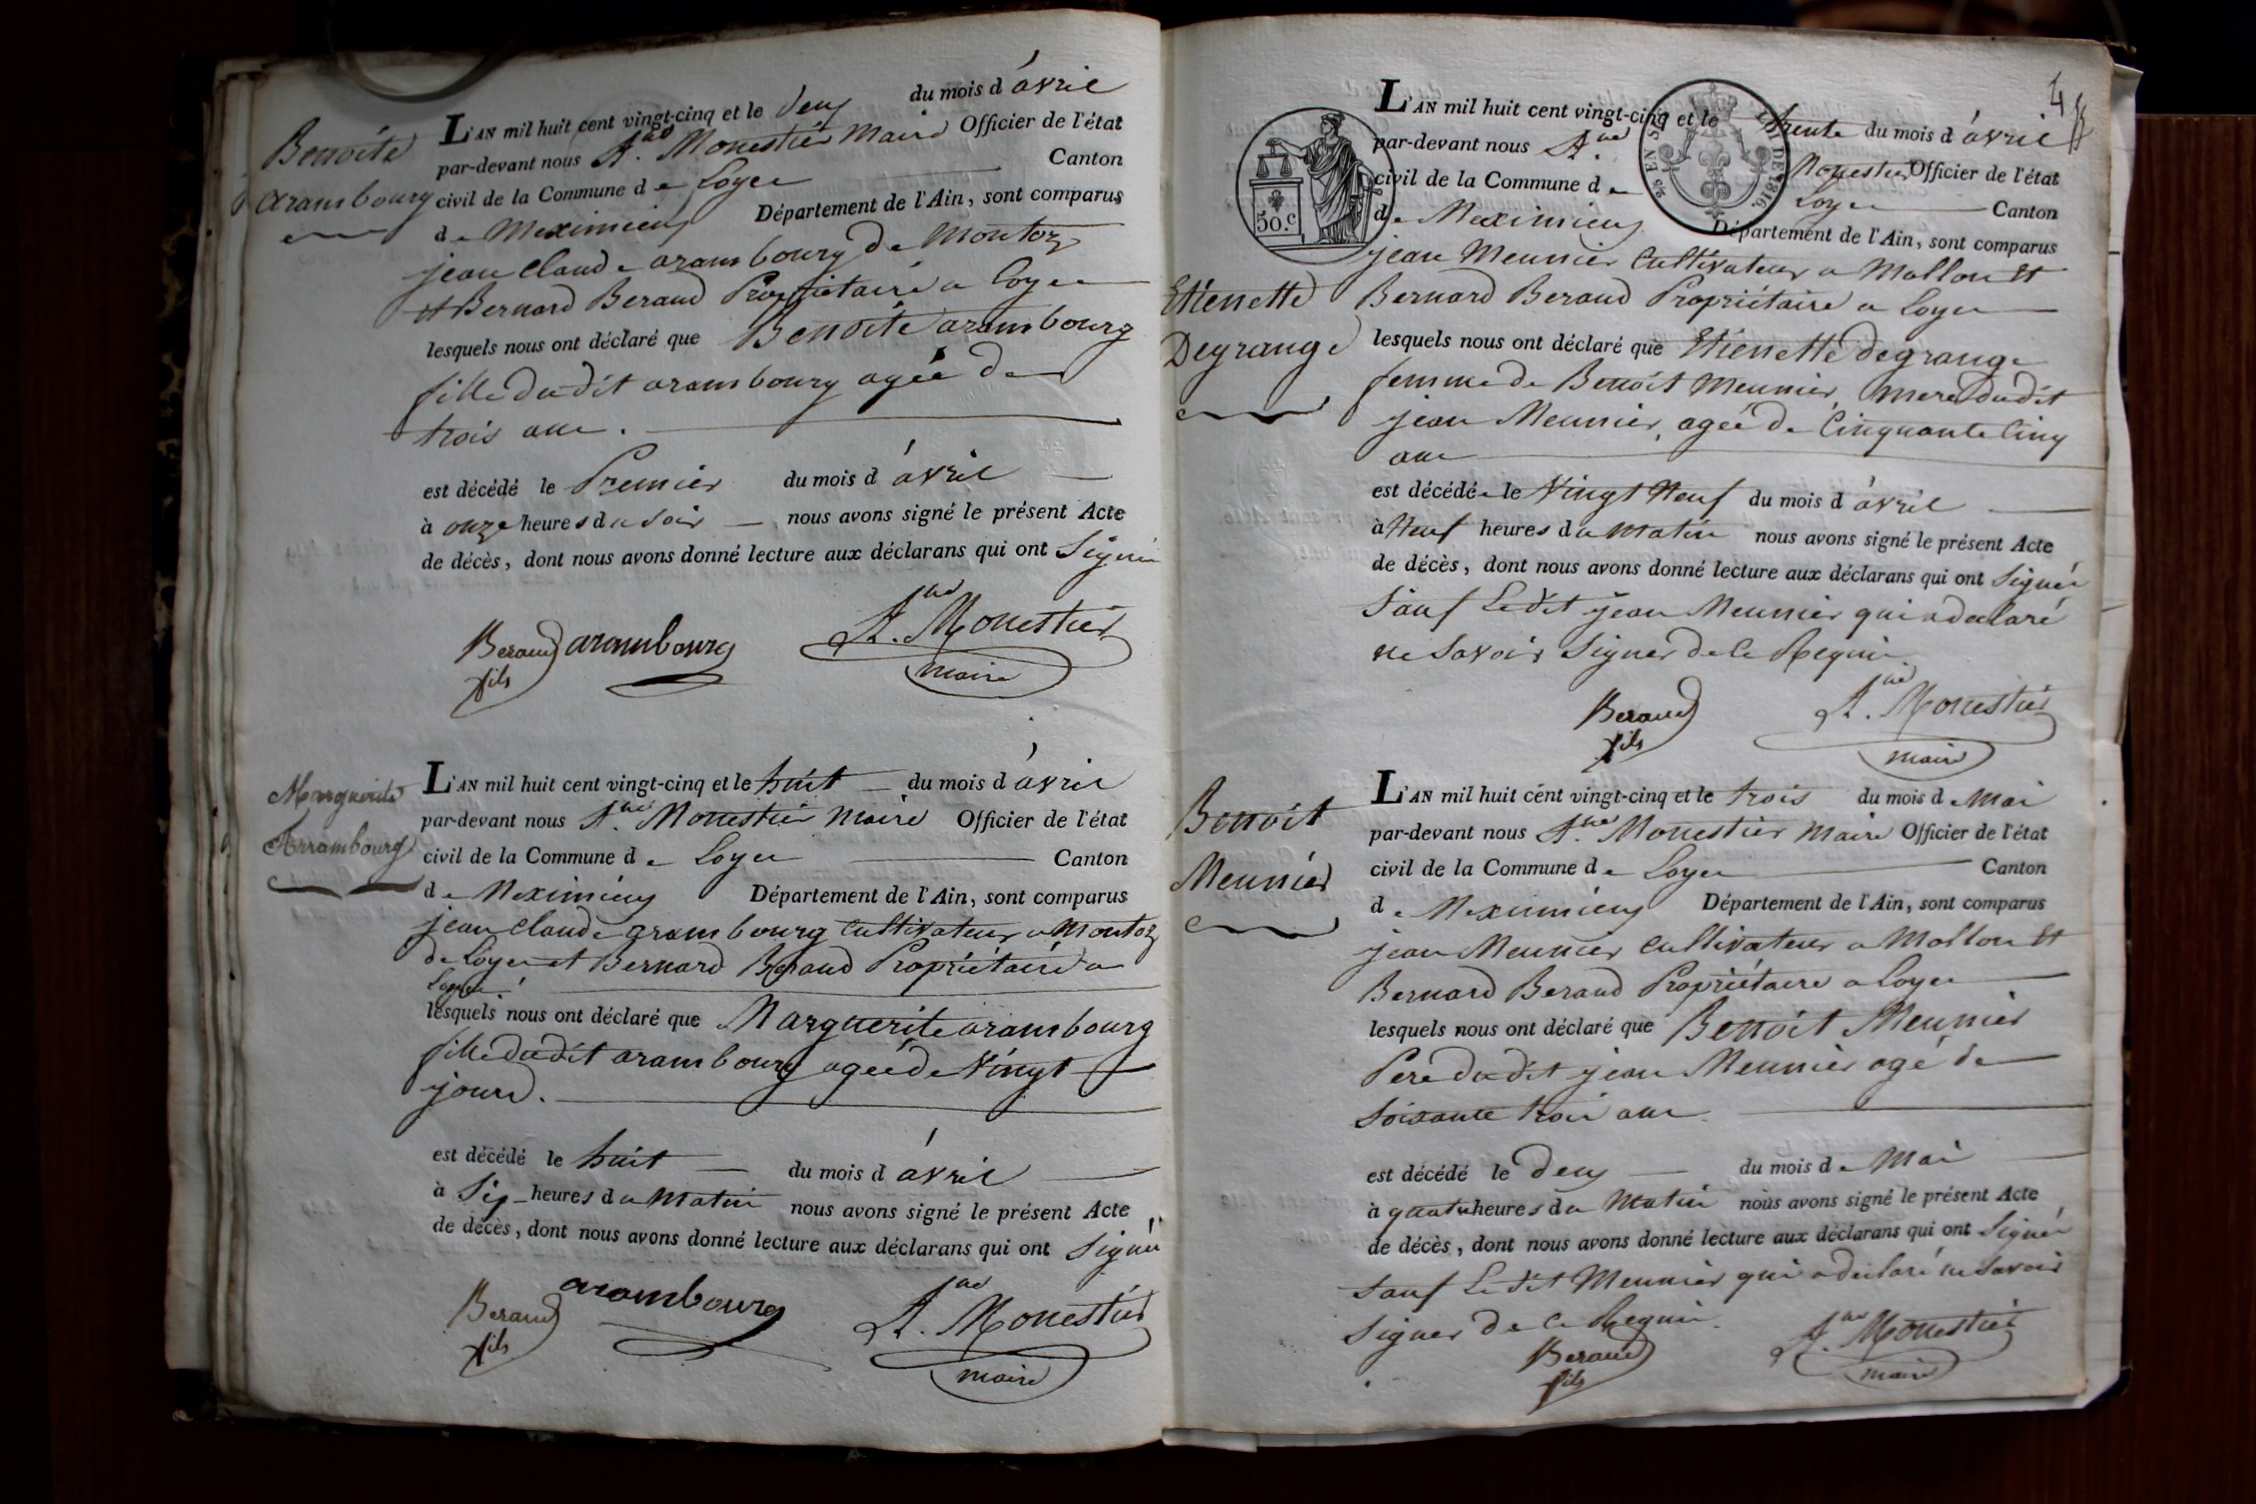 Benoite
arambourg
L'AN mil huit cent vingt-cinq et le deux du mois d'avril
par-devant nous A.ne Monestier Maire Officier de l'état
civil de la Commune de Loyes Canton
de Meximieux Département de l'Ain, sont comparus
jean Claude arambourg de Montoz
et Bernard Beraud Propriétaire a Loyes
lesquels nous ont déclaré que Benoite arambourg
fille dudit arambourg agée de
trois ans.
est décédé le Premier du mois d'avril
à onze heures du soir nous avons signé le présent Acte
de décès, dont nous avons donné lecture aux déclarans qui ont Signé
Beraud arambourg A.ne Monestier
fils maire
Marguerite
Arrambourg
L'AN mil huit cent vingt-cinq et le huit du mois d'avril
par-devant nous A.ne Monestier Maire Officier de l'état
civil de la Commune de Loyes Canton
de Meximieux Département de l'Ain, sont comparus
jean Claude arambourg Cultivateur a Montoz
de Loyes et Bernard Beraud Propriétaire a
Loyes
lesquels nous ont déclaré que Marguerite arambourg
fille dudit arambourg agée de Vingt
jours.
est décédé le huit du mois d'avril
à Six heures du Matin nous avons signé le présent Acte
de décès, dont nous avons donné lecture aux déclarans qui ont Signé
Beraud arambourg A.ne Monestier
fils maire
4
50.c
EN SUS
LOI DE 1816.
Etienette
Degrange
L'AN mil huit cent vingt-cinq et le trente du mois d'avril
par-devant nous A.ne Monestier Officier de l'état
civil de la Commune de Loyes Canton
de Meximieux Département de l'Ain, sont comparus
jean Meunier Cultivateur a Mollon Et
Bernard Beraud Propriétaire a Loyes
lesquels nous ont déclaré que Etienette degrange
femme de Benoit Meunier, Mere dudit
jean Meunier, agée de Cinquante Cinq
ans
est décédée le Vingt Neuf du mois d'avril
à Neuf heures du Matin nous avons signé le présent Acte
de décès, dont nous avons donné lecture aux déclarans qui ont Signé
Sauf Ledit jean Meunier qui a declaré
ne Savoir Signer de ce Requis.
Beraud A.ne Monestier
fils maire
Benoit
Meunier
L'AN mil huit cent vingt-cinq et le trois du mois de Mai
par-devant nous A.ne Monestier Maire Officier de l'état
civil de la Commune de Loyes Canton
de Meximieux Département de l'Ain, sont comparus
jean Meunier Cultivateur a Mollon Et
Bernard Beraud Propriétaire a Loyes
lesquels nous ont déclaré que Benoit Meunier
Pere dudit jean Meunier agé de
Soixante trois ans
est décédé le deux du mois de Mai
à quatre heures du Matin nous avons signé le présent Acte
de décès, dont nous avons donné lecture aux déclarans qui ont Signé
Sauf Ledit Meunier qui a declaré ne Savoir
Signer de ce Requis.
Beraud A.ne Monestier
fils maire